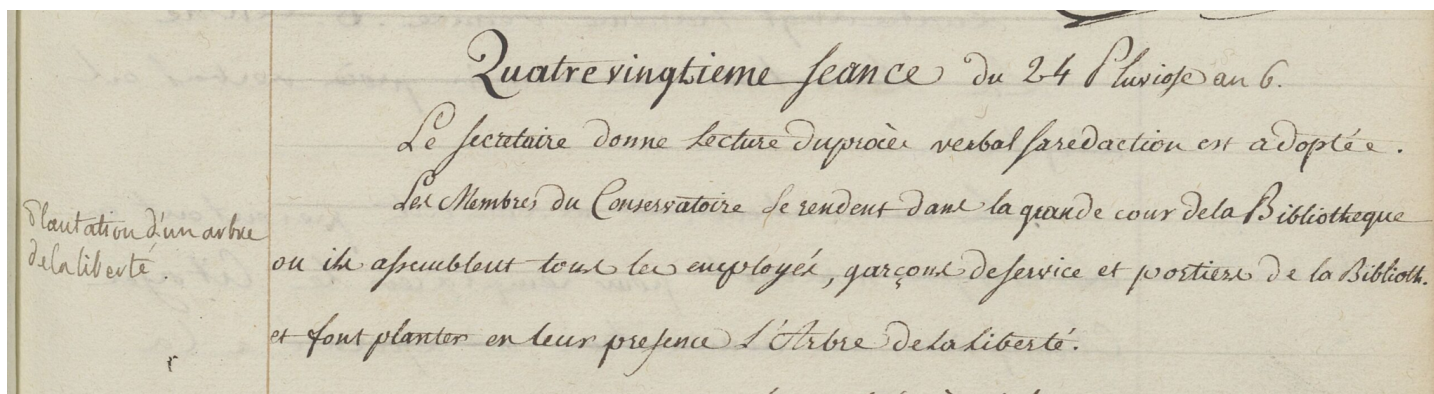 Quatrevingtieme seance du 24 Pluviose an 6.
Le secretaire donne lecture du procès verbal sa redaction est adoptée.
Les Membres du Conservatoire se rendent dans la grande cour de la Bibliotheque
Plantation d'un arbre
de la liberté.
ou ils assemblent tous les employés, garçons de service et portiers de la Biblioth.
et font planter en leur presence l'Arbre de la Liberté.